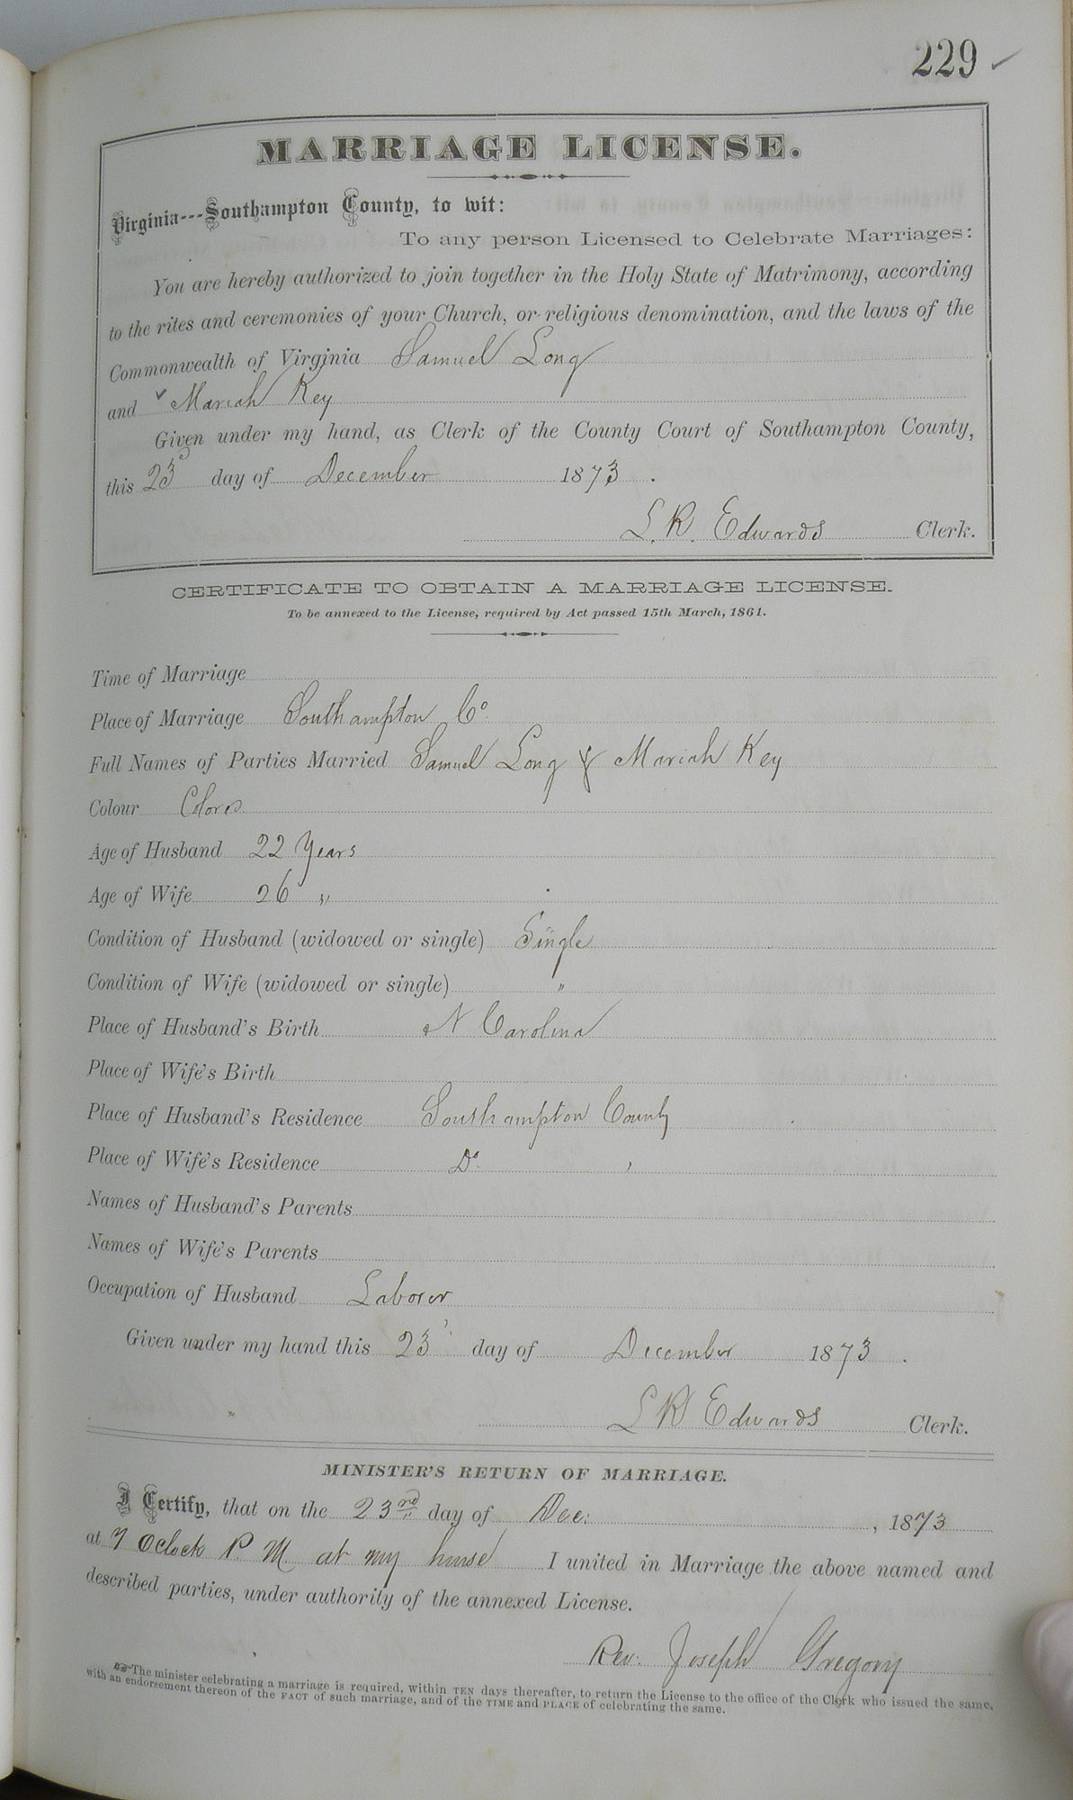 229
MARRIAGE LICENSE.
Virginia---Southampton County, to wit:
To any person Licensed to Celebrate Marriages:
You are hereby authorized to join together in the Holy State of Matrimony, according
to the rites and ceremonies of your Church, or religious denomination, and the laws of the
Commonwealth of Virginia Samuel Long
and Mariah Key
Given under my hand, as Clerk of the County Court of Southampton County,
this 23 day of December 1873.
L. R. Edwards Clerk.
CERTIFICATE TO OBTAIN A MARRIAGE LICENSE.
To be annexed to the License, required by Act passed 15th March, 1861.
Time of Marriage
Place of Marriage Southampton Co
Full Names of Parties Married Samuel Long & Mariah Key
Colour Colored
Age of Husband 22 Years
Age of Wife 26 "
Condition of Husband (widowed or single) Single
Condition of Wife (widowed or single) "
Place of Husband's Birth N Carolina
Place of Wife's Birth
Place of Husband's Residence Southampton County
Place of Wife's Residence Do
Names of Husband's Parents
Names of Wife's Parents
Occupation of Husband Laborer
Given under my hand this 23 day of December 1873.
L R Edwards Clerk.
MINISTER'S RETURN OF MARRIAGE.
I Certify, that on the 23rd day of Dec: , 1873
at 7 Oclock P. M. at my house I united in Marriage the above named and
described parties, under authority of the annexed License.
Rev. Joseph Gregory
The minister celebrating a marriage is required, within TEN days thereafter, to return the License to the office of the Clerk who issued the same,
with an endorsement thereon of the FACT of such marriage, and of the TIME and PLACE of celebrating the same.